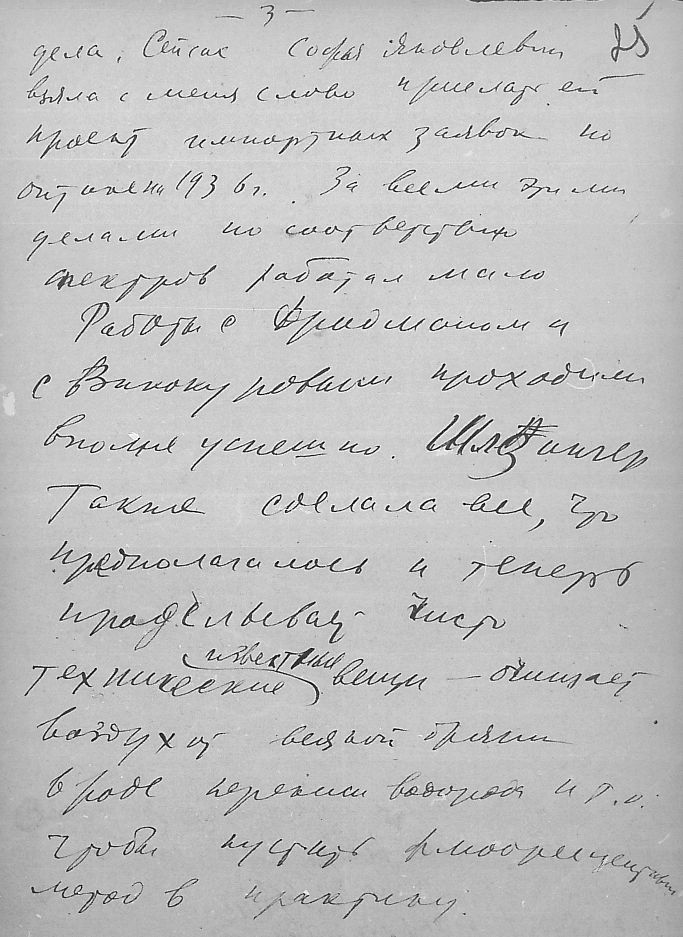 — 3 —
25
дела. Сейчас Софья Яковлевна
взяла с меня слово прислать ей
проект импортных заявок по
на 1936 г. За всеми этими
делами по
спектров работал мало
Работы с Фридманом и
с Винокуровым проходили
вполне успешно.
Также сделала все, что
предполагалось и теперь
проделывает чисто
технические известные вещи — очищает
воздух от всякой дряни
вроде перекиси водорода и т.д.
чтобы пустить флюоресцентный
метод в практику.